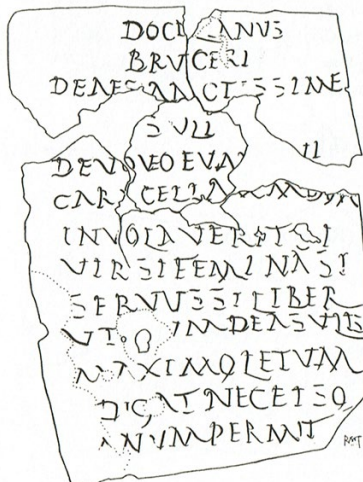 DOCILIANVS
BRVCERI
DEAESANCTISSIME
SVLI
DEVOVEOEVM II
CARCELLA
INVOLAVERITSI
VIRSIFEMINASI
SERVVSSILIBER
VT VMDEASVLIS
MAXIMOLETVM
DIGATNECEISO
NVMPERMIT